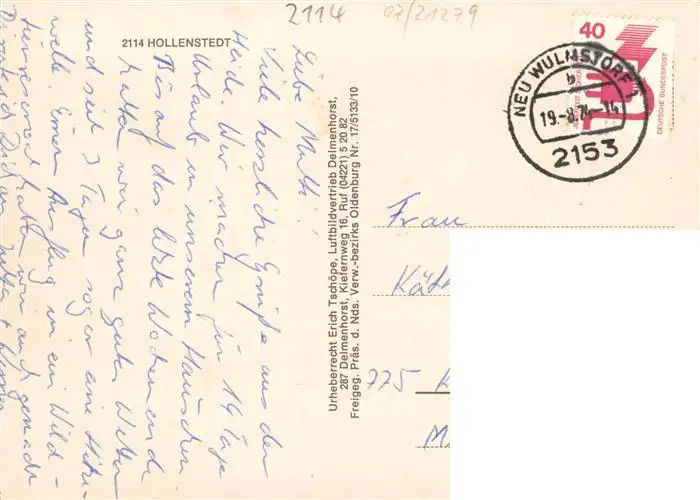 2114
07/21279
2114 HOLLENSTEDT
Liebe Mutti!
Viele herzliche Grüße aus der
Heide. Wir machen für 14 Tage
Urlaub in unserem Häuschen
Bis auf das letzte Wochenende
hatten wir ganz gutes Wetter
und seit 3 Tagen sogar eine Hitze-
welle. Einen Ausflug in ein Wild-
haben wir auch gemacht
Urheberrecht Erich Tschöpe, Luftbildvertrieb Delmenhorst,
287 Delmenhorst, Kiefernweg 16, Ruf (04221) 5 20 82
Freigeg. Präs. d. Nds. Verw.-bezirks Oldenburg Nr. 17/5133/10
40
DEUTSCHE BUNDESPOST
NEU WULMSTORF 1
b
19.-8.74-14
2153
Frau
Kät
775